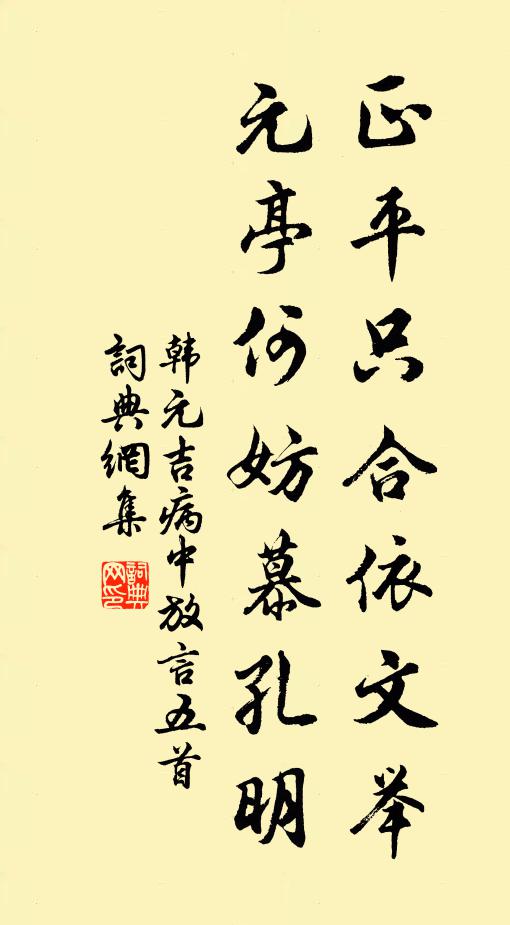 正平只合依文举
元亭何妨慕孔明
韩元吉病中放言五首
詞典網集
詞典网印